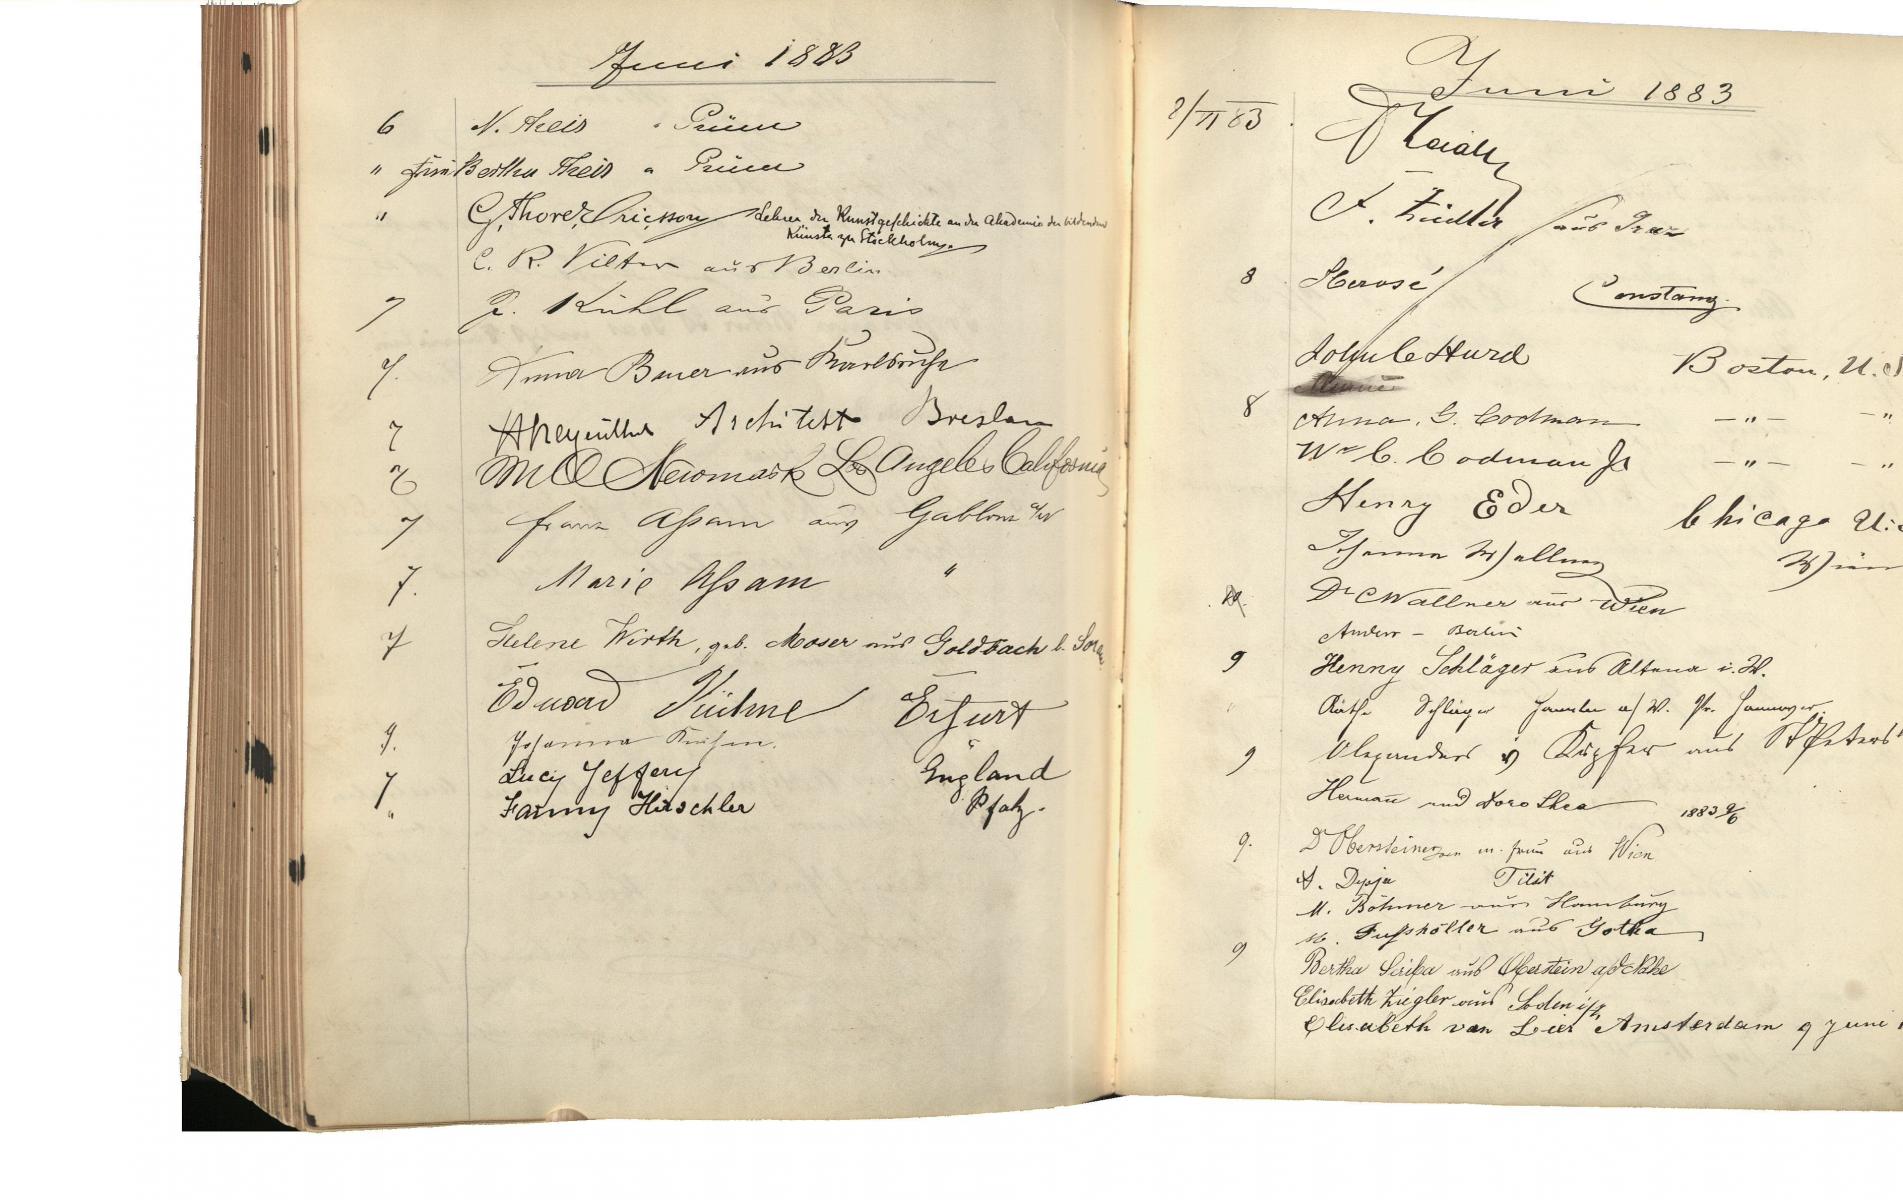 Juni 1883
6 N. Theis " Prüm
" Frau Bertha Theis " Prüm
" C. Thorez Ericsson Lehrer der Kunstgeschichte an der Akademie der bildenden
Künste zu Stockholm.
C. R. aus Berlin
7 Kühl aus Paris
7. Anna Bauer aus Karlsruhe
7 Architekt Breslau
7 M O Newmark Los Angeles California
7 Franz Assam aus Gablonz a/N
7. Marie Assam "
7 Helene Wirth, geb. Moser aus Goldbach b.
Eduard Kühne Erfurt
Johanna
7 Lucy Jeffery England
" Fanny Hirschler Pfalz.
Juni 1883
F. Fiedler aus Graz
8 Herosé Constanz.
John C Hurd Boston, U.S
8 Anna. G. Codman — " — — "
Wm C. Codman Jr — " — — "
Henry Eder Chicago U.S
Johanna Wallner Wien
Dr Wallner aus Wien
Anders - Berlin
9 Henny Schläger aus Altena i. W.
" Käthe Schläger Hameln a/W. Pr. Hannover.
9 Alexander v Küpfer aus St Petersb
Hermann und Dorothea 1883 9/6
9. Dr Obersteiner sen m. Frau aus Wien
A. Tilsit
M. Böhmer aus Hamburg
M. Fusshöller aus Gotha
9 Bertha aus Oberstein a/d Nahe
Elisabeth Ziegler aus Soden
Elisabeth van Lier Amsterdam 9 Juni